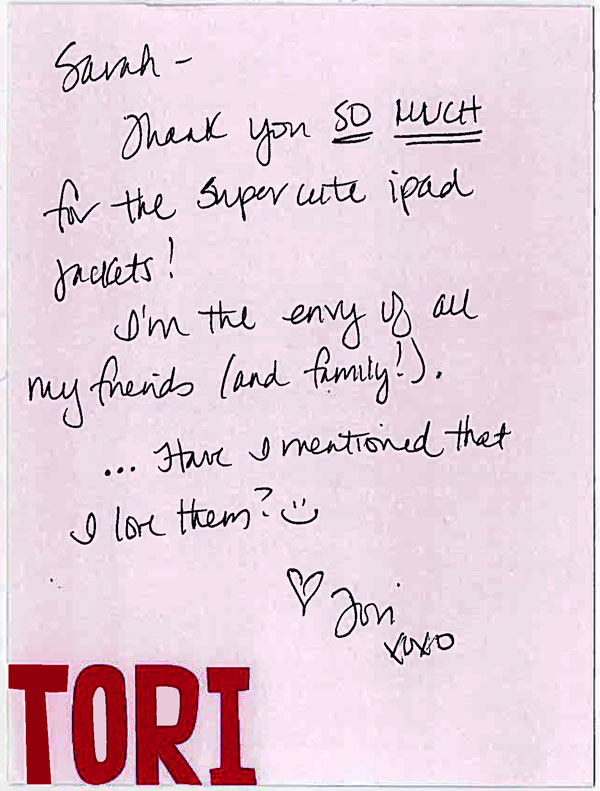 Sarah -
Thank you SO MUCH
for the super cute ipad
jackets!
I'm the envy of all
my friends (and family!).
... Have I mentioned that
I love them? :)
♡ Tori
xoxo
TORI